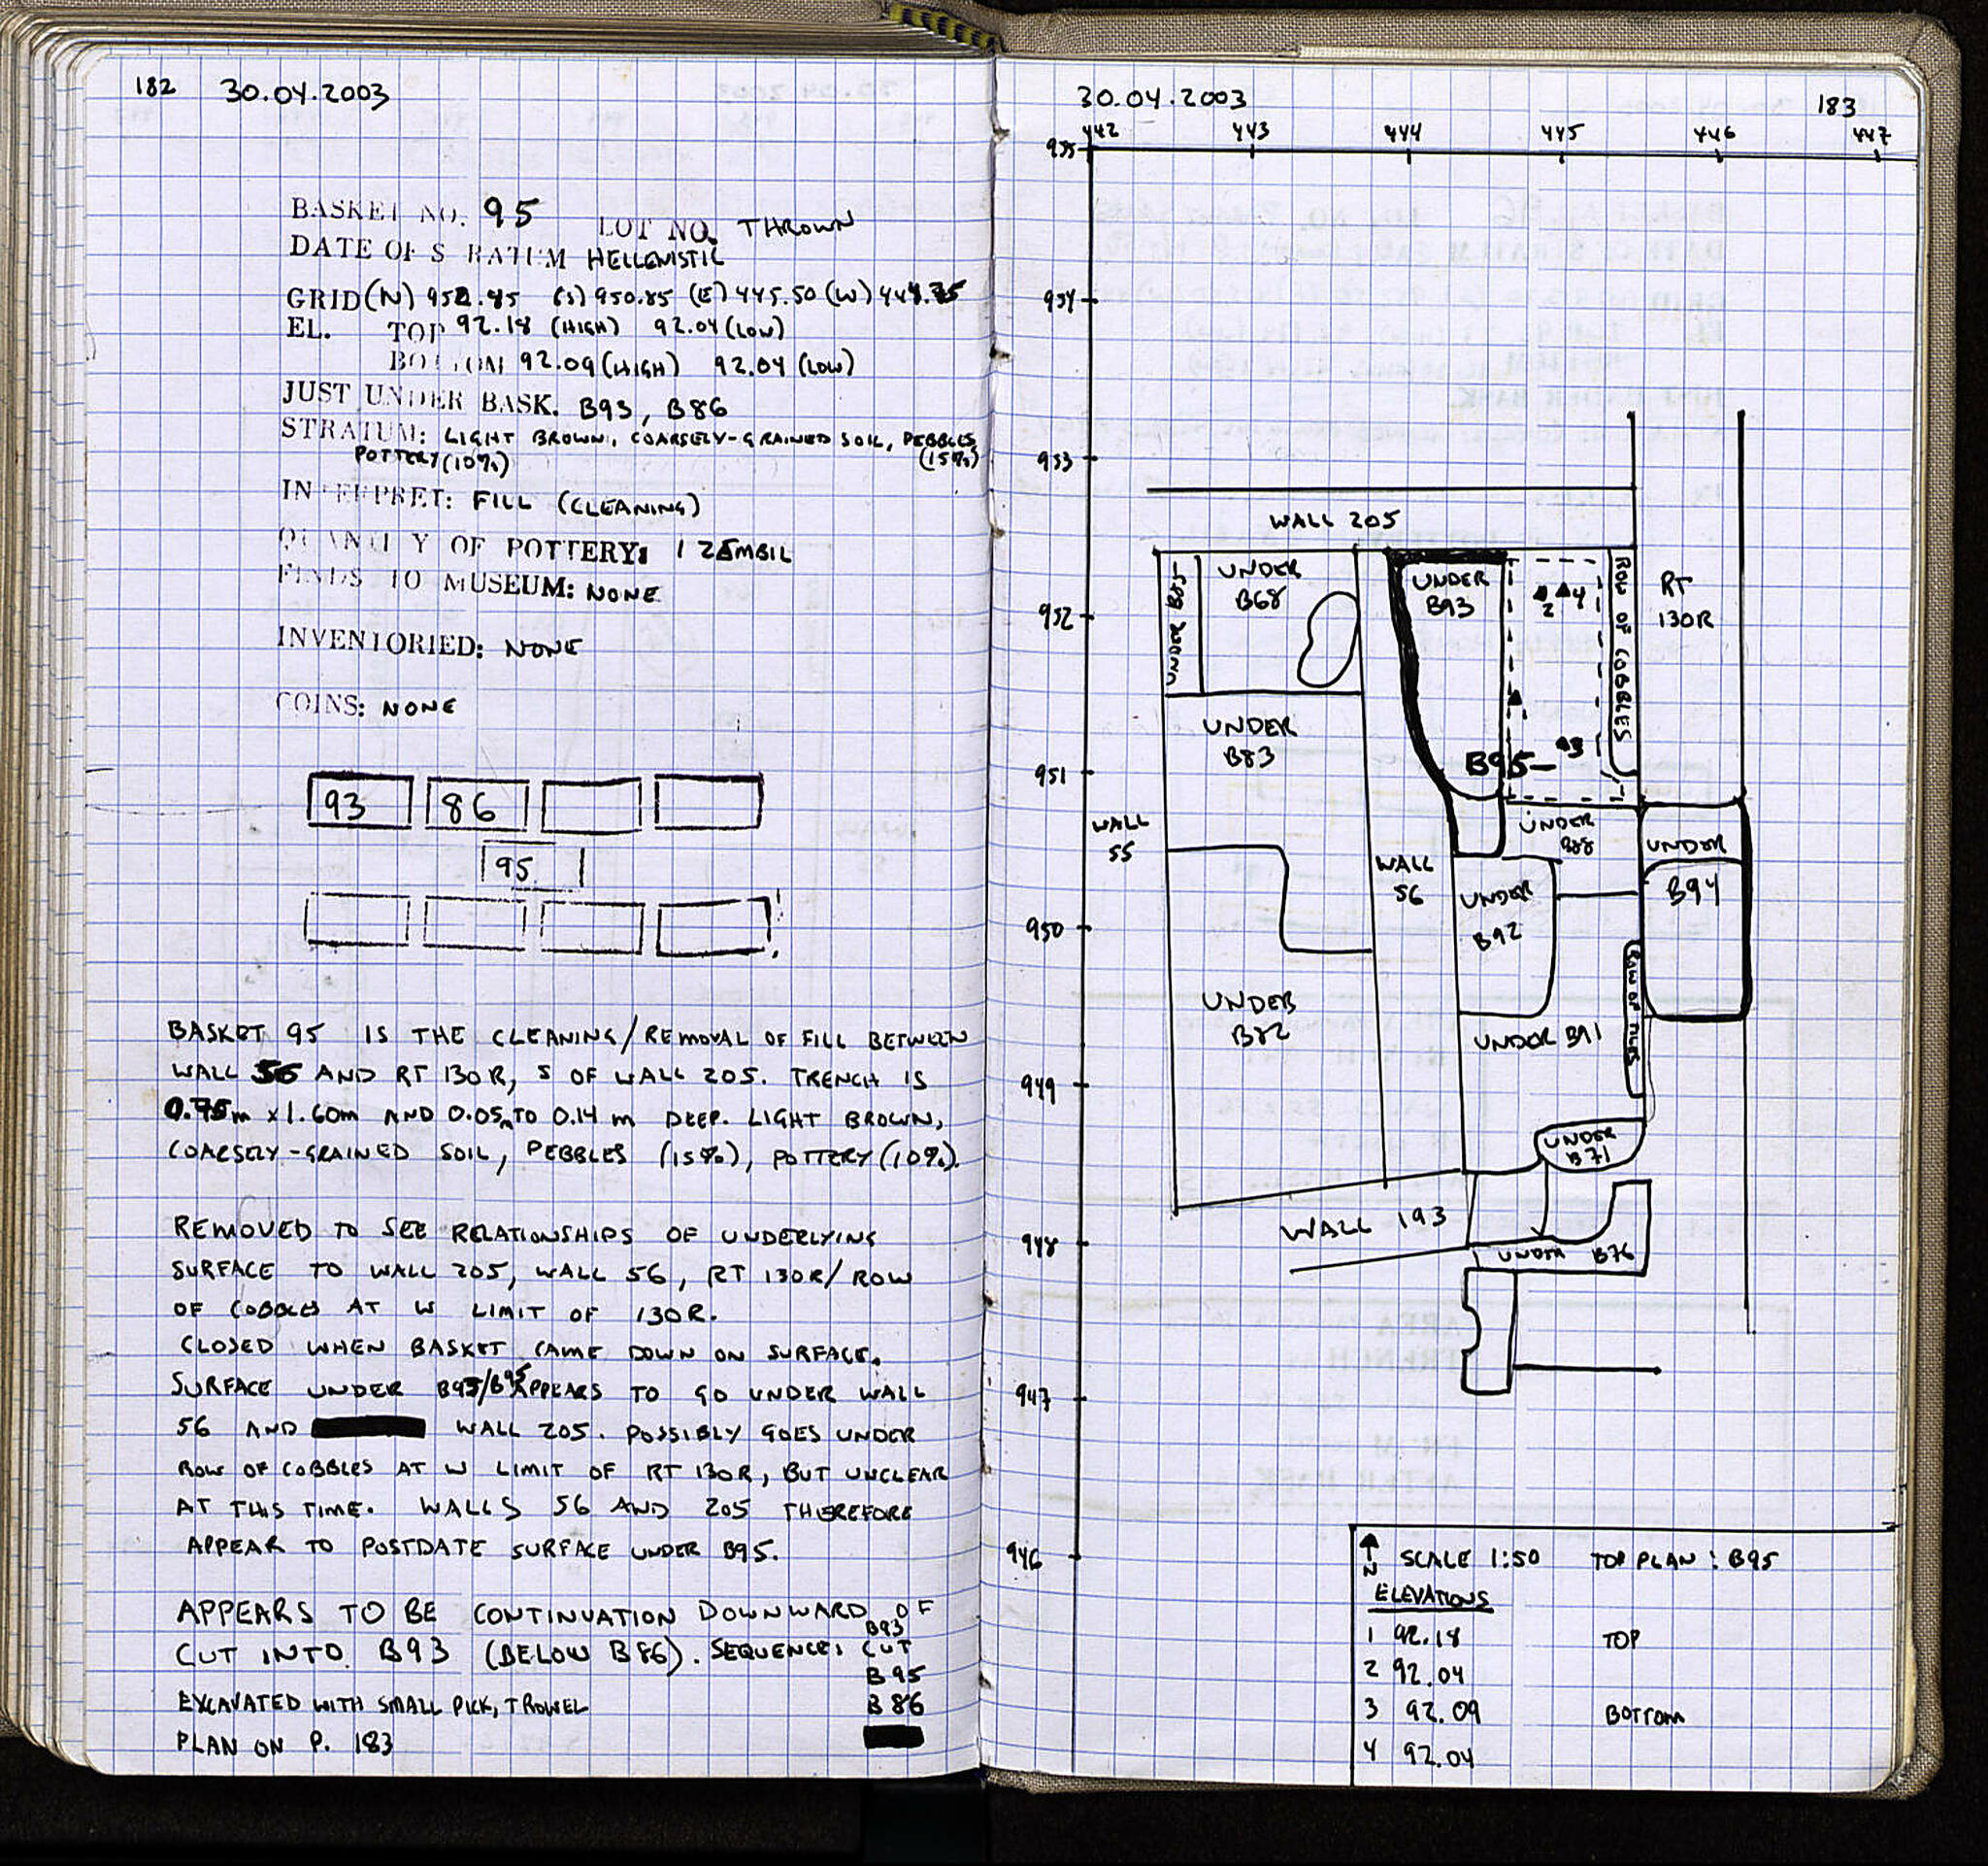 182 30.04.2003
BASKET NO. 95 LOT NO. THROWN
DATE OF STRATUM HELLENISTIC
GRID (N) 952.45 (S) 950.85 (E) 445.50 (W) 444.75
EL. TOP 92.18 (HIGH) 92.04 (LOW)
BOTTOM 92.09 (HIGH) 92.04 (LOW)
JUST UNDER BASK. B93, B86
STRATUM: LIGHT BROWN, COARSELY-GRAINED SOIL, PEBBLES
POTTERY (10%) (15%)
INTERPRET: FILL (CLEANING)
QUANTITY OF POTTERY: 1
FINDS TO MUSEUM: NONE
INVENTORIED: NONE
COINS: NONE
93 86
95
BASKET 95 IS THE CLEANING/REMOVAL OF FILL BETWEEN
WALL 56 AND RT 130R, S OF WALL 205. TRENCH IS
0.75m x 1.60m AND 0.05m TO 0.14 m DEEP. LIGHT BROWN,
COARSELY-GRAINED SOIL, PEBBLES (15%), POTTERY (10%).
REMOVED TO SEE RELATIONSHIPS OF UNDERLYING
SURFACE TO WALL 205, WALL 56, RT 130R/ROW
OF COBBLES AT W LIMIT OF 130R.
CLOSED WHEN BASKET CAME DOWN ON SURFACE.
SURFACE UNDER B93/B95 APPEARS TO GO UNDER WALL
56 AND WALL 205. POSSIBLY GOES UNDER
ROW OF COBBLES AT W LIMIT OF RT 130R, BUT UNCLEAR
AT THIS TIME. WALLS 56 AND 205 THEREFORE
APPEAR TO POSTDATE SURFACE UNDER B95.
APPEARS TO BE CONTINUATION DOWNWARD OF
CUT INTO B93 (BELOW B86). SEQUENCE: B93
CUT
B95
EXCAVATED WITH SMALL PICK, TROWEL B86
PLAN ON P. 183
30.04.2003 183
442 443 444 445 446 447
955
954
953
WALL 205
UNDER B87
UNDER
B68
UNDER
B93
2 4
ROW OF COBBLES
RT
130R
952
UNDER
B83
1
B95 3
951
WALL
55
UNDER
B88
UNDER
B94
WALL
56
UNDER
B92
950
ROW OF TILES
UNDER
B82
UNDER B91
949
UNDER
B71
WALL 193
948
UNDER B76
947
946
N SCALE 1:50 TOP PLAN: B95
ELEVATIONS
1 92.18 TOP
2 92.04
3 92.09 BOTTOM
4 92.04